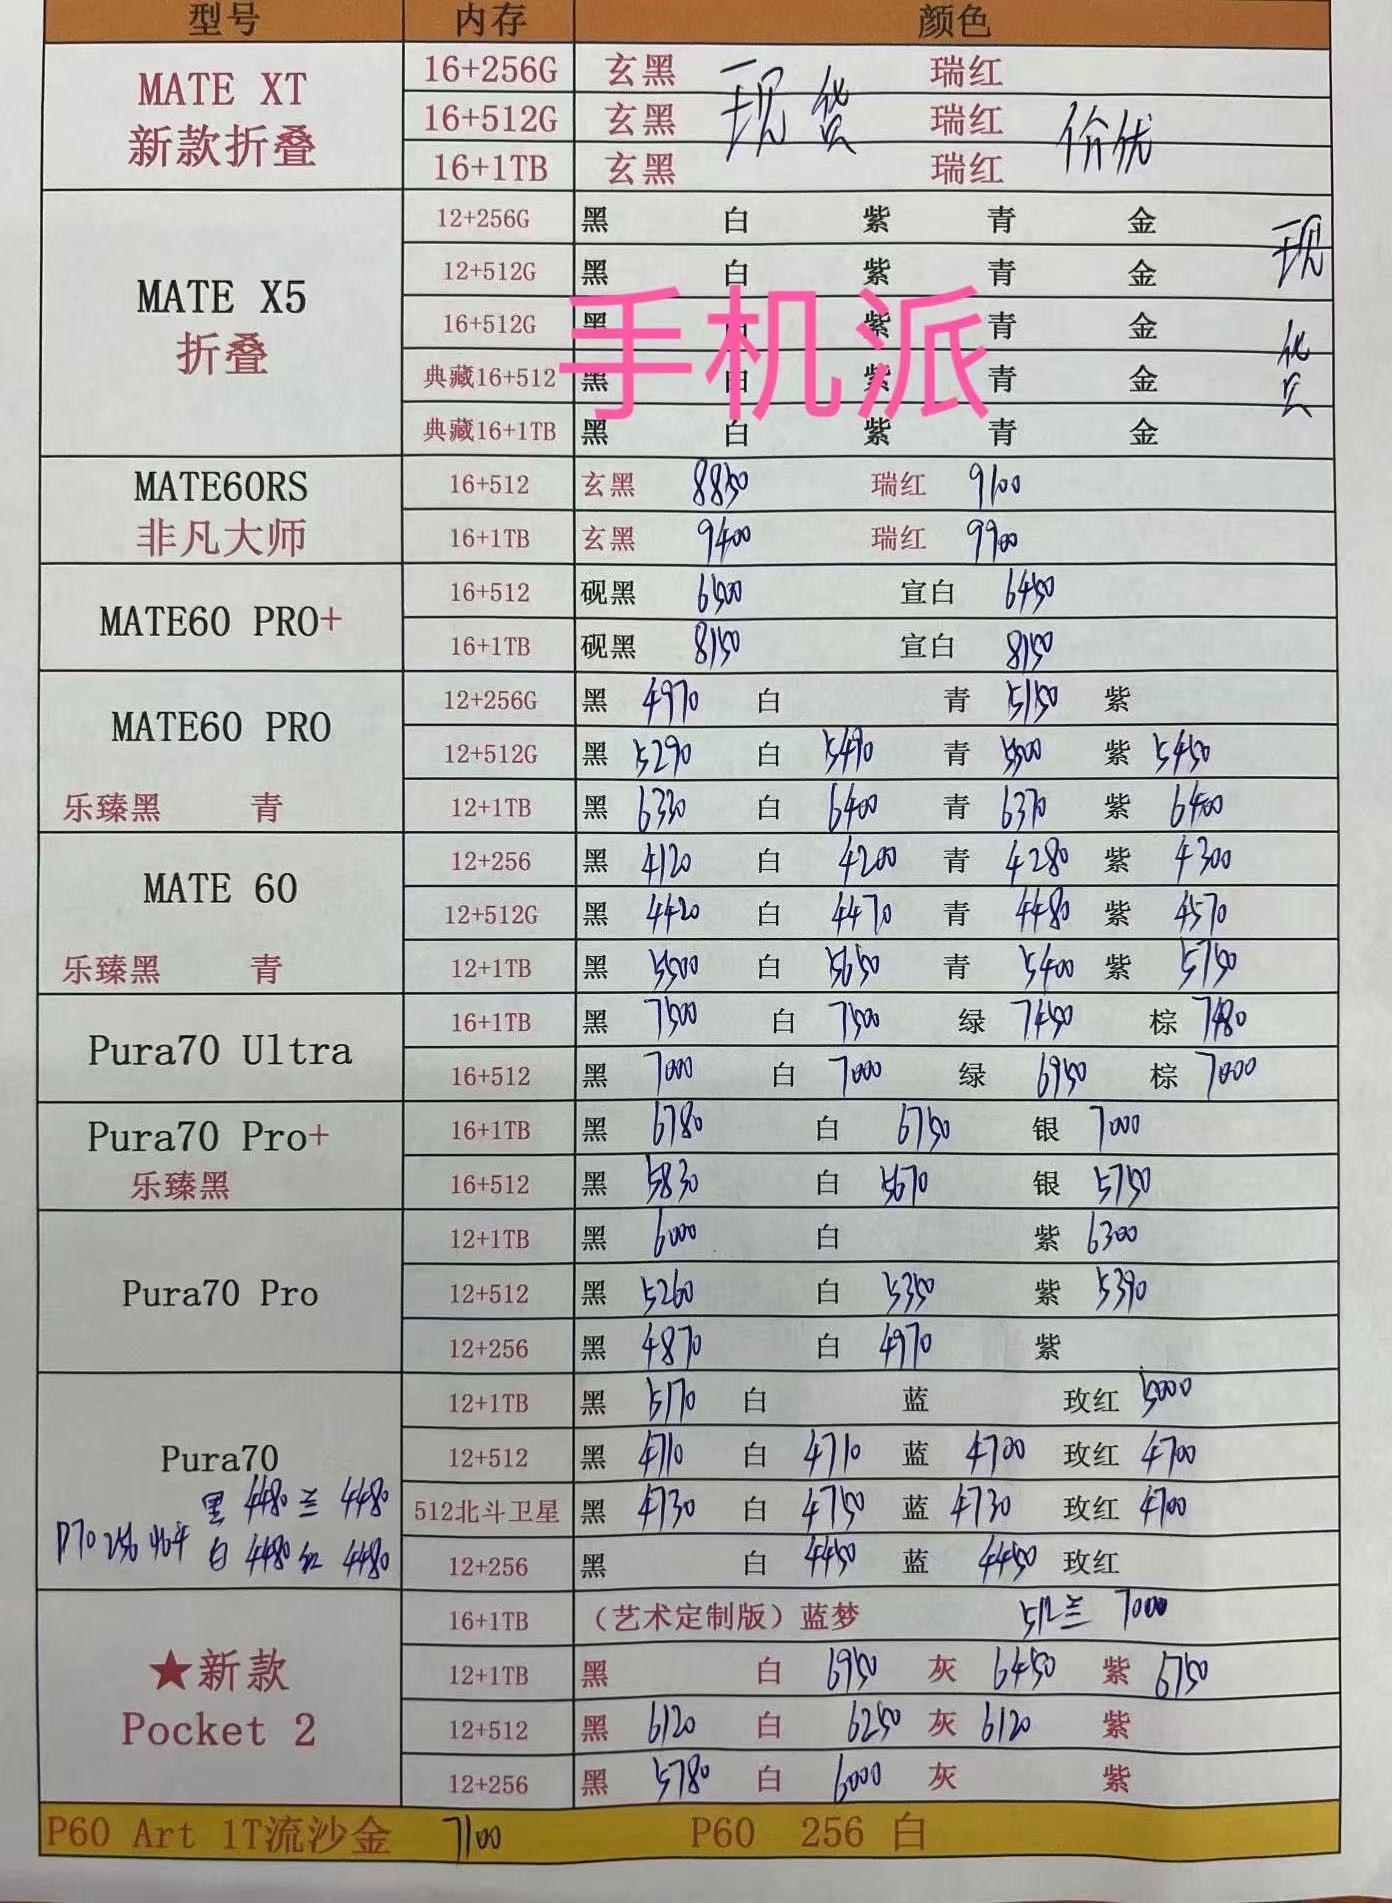 型号 内存 颜色
MATE XT 16+256G 玄黑 现货 瑞红
新款折叠 16+512G 玄黑 瑞红 价优
16+1TB 玄黑 瑞红
MATE X5 12+256G 黑 白 紫 青 金 现货
折叠 12+512G 黑 白 紫 青 金
16+512G 黑 白 紫 青 金
手机派
典藏16+512 黑 白 紫 青 金
典藏16+1TB 黑 白 紫 青 金
MATE60RS 16+512 玄黑 8850 瑞红 9100
非凡大师 16+1TB 玄黑 9400 瑞红 9900
MATE60 PRO+ 16+512 砚黑 6500 宣白 6450
16+1TB 砚黑 8150 宣白 8150
MATE60 PRO 12+256G 黑 4970 白 青 5150 紫
12+512G 黑 5290 白 5490 青 5500 紫 5450
乐臻黑 青 12+1TB 黑 6330 白 6400 青 6370 紫 6400
MATE 60 12+256 黑 4120 白 4200 青 4280 紫 4300
12+512G 黑 4420 白 4470 青 4480 紫 4570
乐臻黑 青 12+1TB 黑 5500 白 5650 青 5400 紫 5750
Pura70 Ultra 16+1TB 黑 7500 白 7500 绿 7450 棕 7480
16+512 黑 7000 白 7000 绿 6950 棕 7000
Pura70 Pro+ 16+1TB 黑 6780 白 6750 银 7000
乐臻黑 16+512 黑 5830 白 5670 银 5750
Pura70 Pro 12+1TB 黑 6000 白 紫 6300
12+512 黑 5260 白 5350 紫 5390
12+256 黑 4870 白 4970 紫
Pura70 12+1TB 黑 5170 白 蓝 玫红 5000
12+512 黑 4710 白 4710 蓝 4700 玫红 4700
黑 4480 兰 4480 512北斗卫星 黑 4730 白 4750 蓝 4730 玫红 4700
P70 256 白 4480 红 4480 12+256 黑 白 4450 蓝 4450 玫红
★新款 16+1TB (艺术定制版)蓝梦 512兰 7000
Pocket 2 12+1TB 黑 白 6950 灰 6450 紫 6750
12+512 黑 6120 白 6250 灰 6120 紫
12+256 黑 5780 白 6000 灰 紫
P60 Art 1T流沙金 7100 P60 256 白